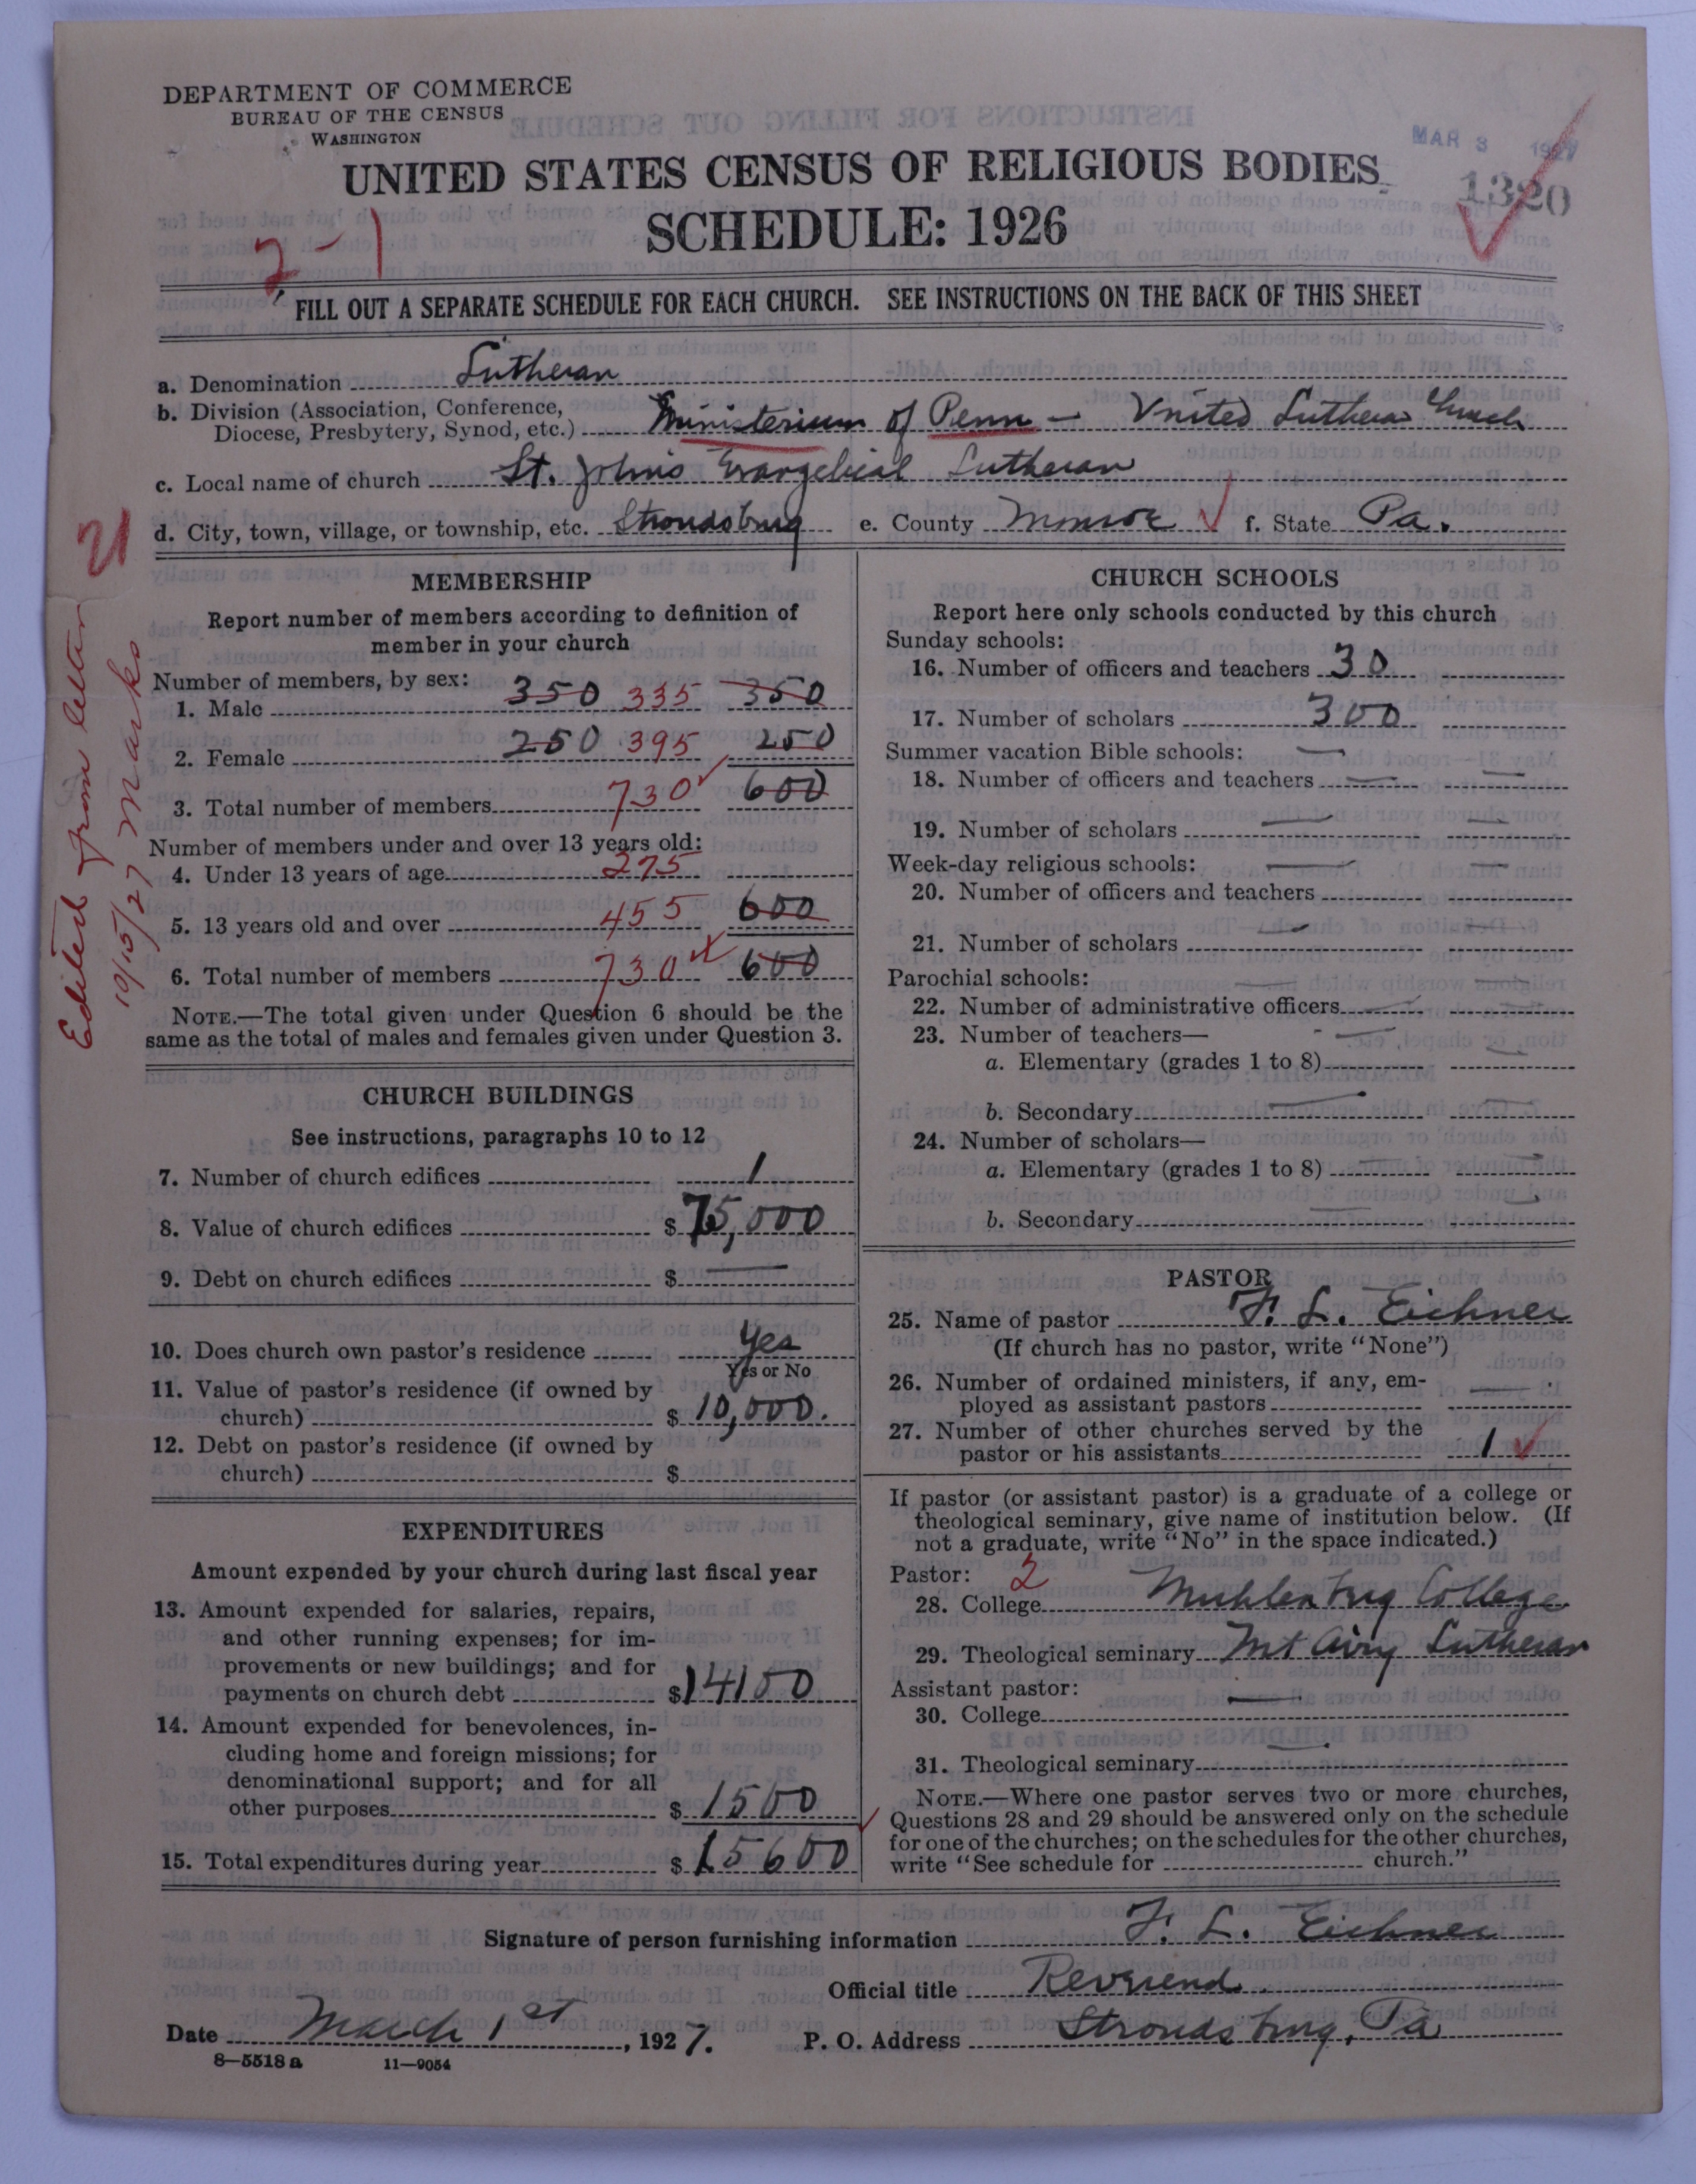 DEPARTMENT OF COMMERCE
BUREAU OF THE CENSUS
WASHINGTON
MAR 3 1927
UNITED STATES CENSUS OF RELIGIOUS BODIES
1320
SCHEDULE: 1926
2-1
FILL OUT A SEPARATE SCHEDULE FOR EACH CHURCH. SEE INSTRUCTIONS ON THE BACK OF THIS SHEET
a. Denomination Lutheran
b. Division (Association, Conference, Diocese, Presbytery, Synod, etc.) Ministerium of Penn — United Lutheran Church
c. Local name of church St. Johns Evangelical Lutheran
d. City, town, village, or township, etc. Stroudsburg e. County Monroe f. State Pa.
21
Edited from letter
10/15/27 Marks
MEMBERSHIP
Report number of members according to definition of
member in your church
Number of members, by sex:
1. Male 350 335 350
2. Female 250 395 250
3. Total number of members 730 600
Number of members under and over 13 years old:
4. Under 13 years of age 275
5. 13 years old and over 455 600
6. Total number of members 730 600
NOTE.—The total given under Question 6 should be the
same as the total of males and females given under Question 3.
CHURCH BUILDINGS
See instructions, paragraphs 10 to 12
7. Number of church edifices 1
8. Value of church edifices $ 75,000
9. Debt on church edifices $ —
10. Does church own pastor's residence Yes
Yes or No
11. Value of pastor's residence (if owned by
church) $ 10,000.
12. Debt on pastor's residence (if owned by
church) $
EXPENDITURES
Amount expended by your church during last fiscal year
13. Amount expended for salaries, repairs,
and other running expenses; for im-
provements or new buildings; and for
payments on church debt $ 14100
14. Amount expended for benevolences, in-
cluding home and foreign missions; for
denominational support; and for all
other purposes $ 1500
15. Total expenditures during year $ 15600
CHURCH SCHOOLS
Report here only schools conducted by this church
Sunday schools:
16. Number of officers and teachers 30
17. Number of scholars 300
Summer vacation Bible schools: —
18. Number of officers and teachers — —
19. Number of scholars — —
Week-day religious schools: — —
20. Number of officers and teachers
21. Number of scholars — —
Parochial schools: — —
22. Number of administrative officers — —
23. Number of teachers— — —
a. Elementary (grades 1 to 8)
b. Secondary — —
24. Number of scholars—
a. Elementary (grades 1 to 8) — —
b. Secondary — —
PASTOR
25. Name of pastor F. L. Eichner
(If church has no pastor, write "None")
26. Number of ordained ministers, if any, em-
ployed as assistant pastors —
27. Number of other churches served by the
pastor or his assistants 1
If pastor (or assistant pastor) is a graduate of a college or
theological seminary, give name of institution below. (If
not a graduate, write "No" in the space indicated.)
Pastor: 2
28. College Muhlenburg College
29. Theological seminary Mt Airy Lutheran
Assistant pastor: —
30. College
31. Theological seminary —
NOTE.—Where one pastor serves two or more churches,
Questions 28 and 29 should be answered only on the schedule
for one of the churches; on the schedules for the other churches,
write "See schedule for church."
Signature of person furnishing information F. L. Eichner
Official title Reverend
Date March 1st, 1927. P. O. Address Stroudsburg, Pa
8—5518 a 11—9054